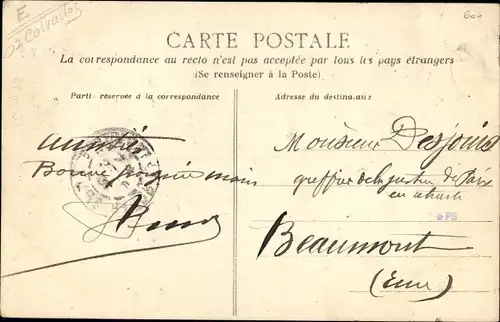 E
Calvados
CARTE POSTALE
La correspondance au recto n'est pas acceptée par tous les pays étrangers
(Se renseigner à la Poste)
Partie réservée à la correspondance
Adresse du destinataire
Amitiés
Bonne poignée main
Monsieur Desjouis
greffier de la justice de Paix
en retraite
*PB
Beaumont
(Eure)